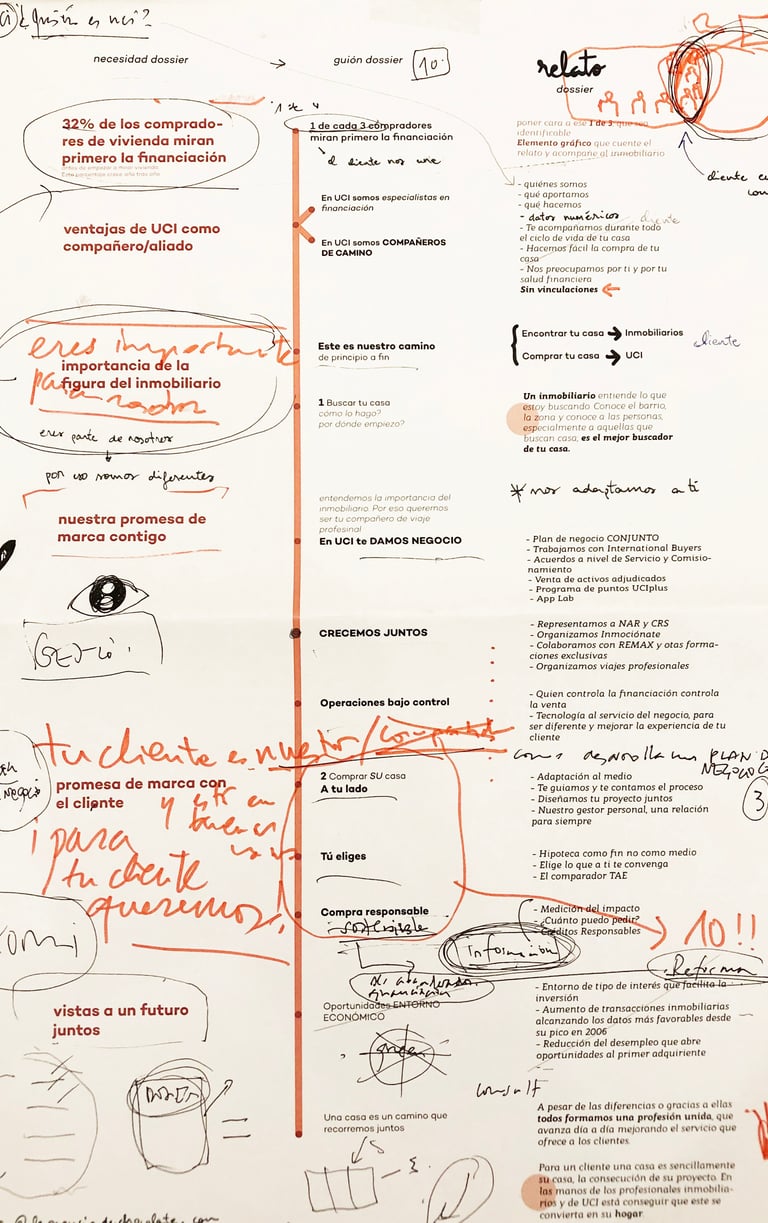 ¿Quién es uci?
necesidad dossier
guión dossier
10
relato
dossier
32% de los comprado-
res de vivienda miran
primero la financiación
1 de cada 3 compradores
miran primero la financiación
el cliente nos une
poner cara a ese 1 de 3 que sea
identificable
Elemento gráfico que cuente el
relato y acompañe al inmobiliario
ventajas de UCI como
compañero/aliado
En UCI somos especialistas en
financiación
En UCI somos COMPAÑEROS
DE CAMINO
- quiénes somos
- qué aportamos
- qué hacemos
- datos numéricos
cliente
- Te acompañamos durante todo
el ciclo de vida de tu casa
- Hacemos fácil la compra de tu
casa
- Nos preocupamos por ti y por tu
salud financiera
Sin vinculaciones
eres importante
para nosotros
importancia de la
figura del inmobiliario
eres parte de nosotros
por eso somos diferentes
Este es nuestro camino
de principio a fin
Encontrar tu casa → Inmobiliarios
Comprar tu casa → UCI
cliente
1 Buscar tu casa
cómo lo hago?
por dónde empiezo?
Un inmobiliario entiende lo que
estoy buscando Conoce el barrio,
la zona y conoce a las personas,
especialmente a aquellas que
buscan casa, es el mejor buscador
de tu casa.
* nos adaptamos a ti
nuestra promesa de
marca contigo
entendemos la importancia del
inmobiliario. Por eso queremos
ser tu compañero de viaje
profesinal
En UCI te DAMOS NEGOCIO
- Plan de negocio CONJUNTO
- Trabajamos con International Buyers
- Acuerdos a nivel de Servicio y Comisio-
namiento
- Venta de activos adjudicados
- Programa de puntos UCIplus
- App Lab
CRECEMOS JUNTOS
- Representamos a NAR y CRS
- Organizamos Inmociónate
- Colaboramos con REMAX y otas forma-
ciones exclusivas
- Organizamos viajes profesionales
Operaciones bajo control
- Quien controla la financiación controla
la venta
- Tecnología al servicio del negocio, para
ser diferente y mejorar la experiencia de tu
cliente
tu cliente es nuestro/
desarrolla un PLAN D
NEGOCIO
3
promesa de marca con
el cliente
y está en
buenas
¡para
tu cliente
queremos!
2 Comprar SU casa
A tu lado
- Adaptación al medio
- Te guiamos y te contamos el proceso
- Diseñamos tu proyecto juntos
- Nuestro gestor personal, una relación
para siempre
Tú eliges
- Hipoteca como fin no como medio
- Elige lo que a ti te convenga
- El comparador TAE
Compra responsable
sostenible
- Medición del impacto
- Cuánto puedo pedir?
- Créditos Responsables
10!!
Información
Reforma
vistas a un futuro
juntos
Oportunidades ENTORNO
ECONÓMICO
- Entorno de tipo de interés que facilita la
inversión
- Aumento de transacciones inmobiliarias
alcanzando los datos más favorables desde
su pico en 2006
- Reducción del desempleo que abre
oportunidades al primer adquiriente
Una casa es un camino que
recorremos juntos
A pesar de las diferencias o gracias a ellas
todos formamos una profesión unida, que
avanza día a día mejorando el servicio que
ofrece a los clientes.
Para un cliente una casa es sencillamente
su casa, la consecución de su proyecto. En
las manos de los profesionales inmobilia-
rios y de UCI está conseguir que este se
convierta en su hogar